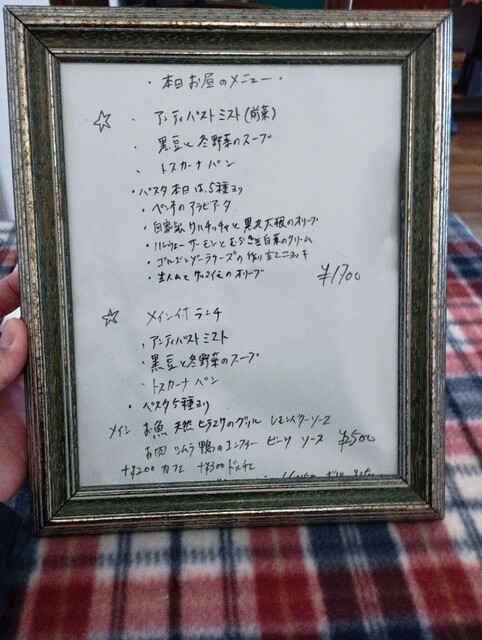 ・本日お昼のメニュー・
☆・アンティパスト ミスト(前菜)
・黒豆と冬野菜のスープ
・トスカーナ パン
・パスタ 本日は、5種より
・ペンネのアラビアータ
・自家製 サルチッチャと黒丸大根のオリーブ
・ノルウェーサーモンとむらさき白菜のクリーム
・ゴルゴンゾーラチーズの作り立てニョッキ
・生ハムと サツマイモのオリーブ
¥1700
☆ メイン付 ランチ
・アンティパスト ミスト
・黒豆と冬野菜のスープ
・トスカーナ パン
・パスタ 5種より
メイン お魚 天然 ヒラマサのグリル レモンバターソース
お肉 鴨のコンフィー ビーツ ソース
+¥200 カフェ +¥300 ドルチェ